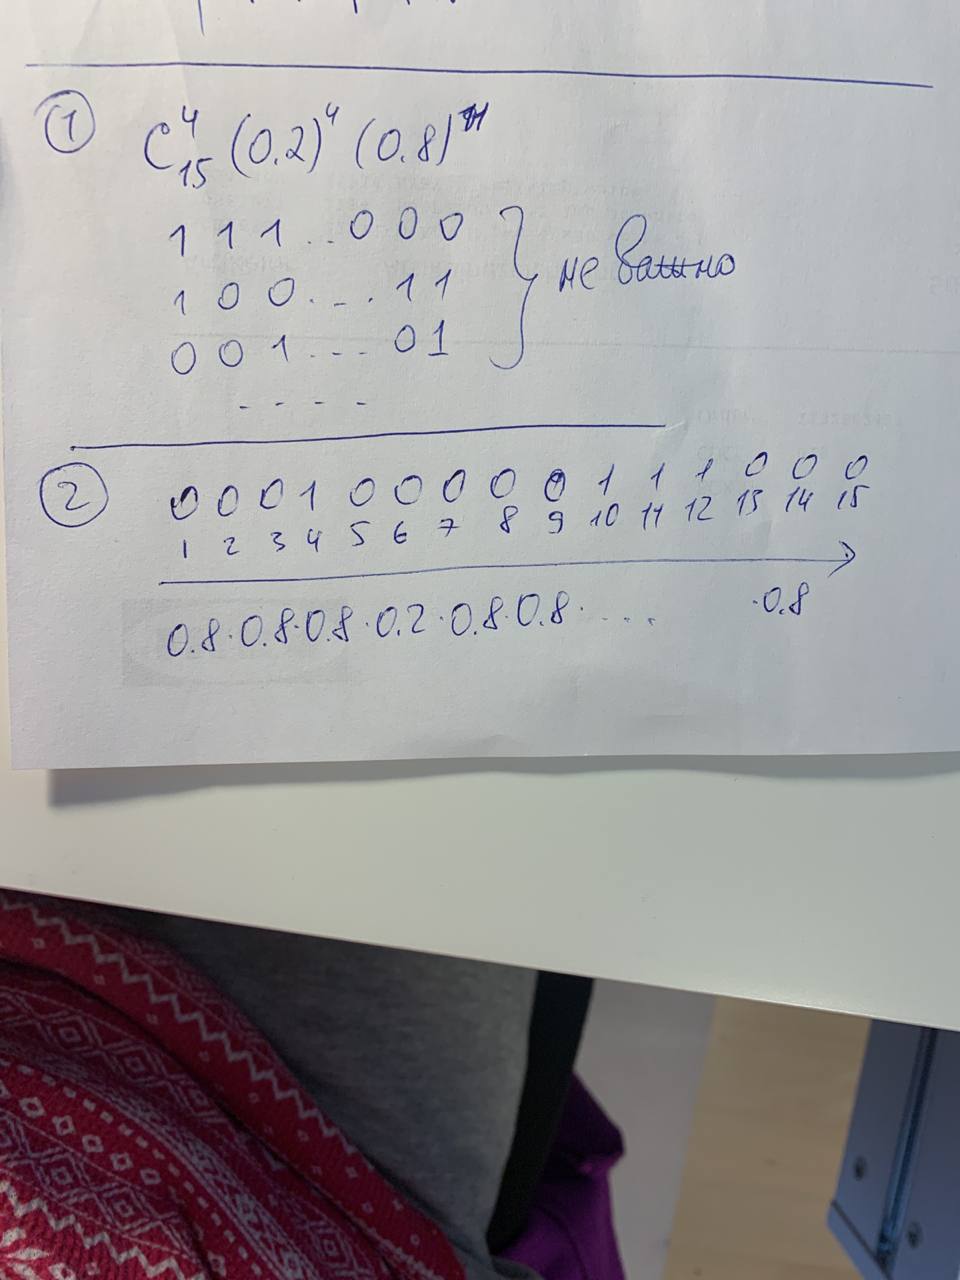 ① C⁴₁₅ (0.2)⁴ (0.8)¹¹
1 1 1 .. 0 0 0
1 0 0 . - . 1 1
0 0 1 . . . 0 1
} не важно
- - - -
② 0 0 0 1 0 0 0 0 0 1 1 1 0 0 0
1 2 3 4 5 6 7 8 9 10 11 12 13 14 15
0.8 · 0.8 · 0.8 · 0.2 · 0.8 · 0.8 · . . . · 0.8